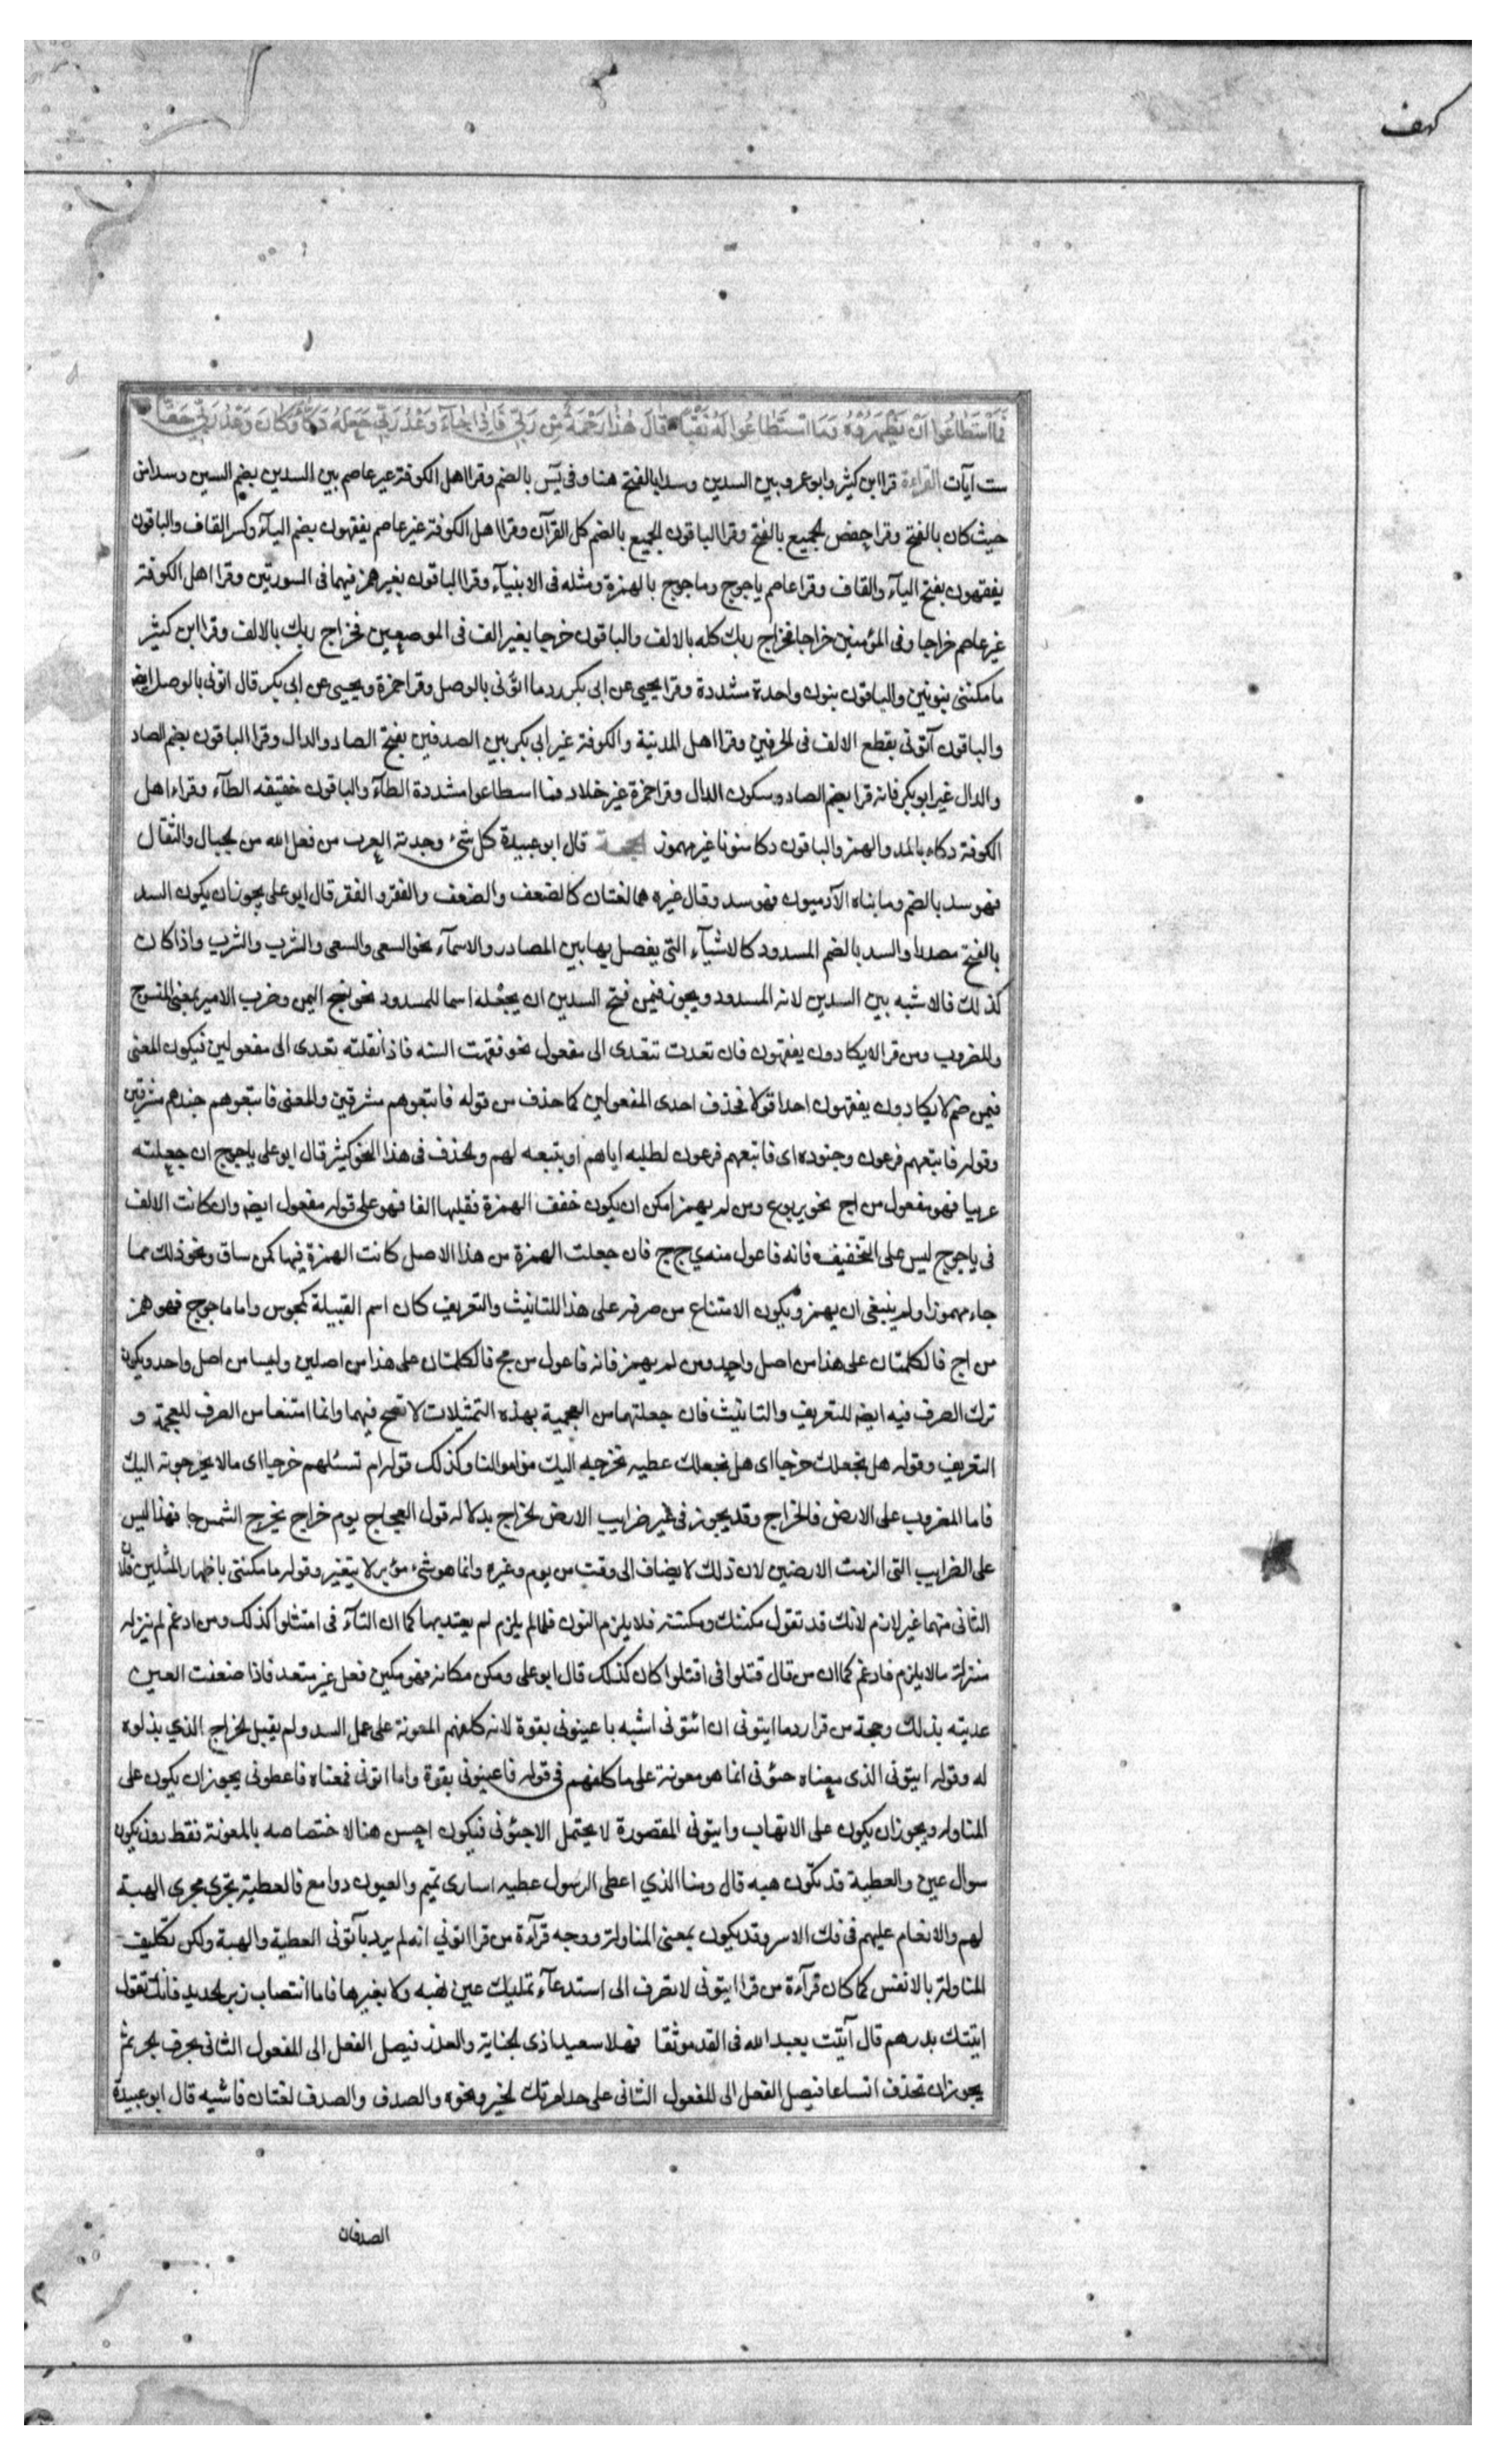 كهف
فَمَا اسْتَطَاعُوا اَنْ يَظْهَرُوهُ وَمَا اسْتَطَاعُوا لَهُ نَقْبًا قَالَ هٰذَا رَحْمَةٌ مِنْ رَبّي فَاِذَا جَآءَ وَعْدُ رَبّي جَعَلَهُ دَكَّاءَ وَكَانَ وَعْدُ رَبّي حَقًّا
ست آيات القراءة قرا ابن كثير وابو عمرو بين السدين وسدا بالفتح هنا وفى يس بالضم وقرا اهل الكوفة غير عاصم بين السدين بضم السين وسدا اين
حيث كان بالفتح وقرا حفص الجميع بالفتح وقرا الباقون الجميع بالضم كل القرآن وقرا اهل الكوفة غير عاصم يفقهون بضم اليآء وكسر القاف والباقون
يفقهون بفتح اليآء والقاف وقرا عاصم ياجوج وماجوج بالهمزة ومثله فى الانبيآء وقرا الباقون بغير همز فيهما فى السورتين وقرا اهل الكوفة
غير عاصم خراجا وفى المؤمنين خراجا فخراج ربك كله بالالف والباقون خرجا بغير الف فى الموضعين فخراج ربك بالالف وقرا ابن كثير
ما مكننى بنونين والباقون بنون واحدة مشددة وقرا يحيى عن ابى بكر ردما ائتونى بالوصل وقرا حمزة ويحيى عن ابى بكر قال ائتونى بالوصل ايضا
والباقون آتونى بقطع الالف فى الحرفين وقرا اهل المدينة والكوفة غير ابى بكر بين الصدفين بفتح الصاد والدال وقرا الباقون بضم الصاد
والدال غير ابو بكر فانه قرا بضم الصاد وسكون الدال وقرا حمزة غير خلاد فما اسطاعوا مشددة الطآء والباقون خفيفه الطآء وقراء اهل
الكوفة دكاء بالمد والهمز والباقون دكا منونا غير مهموز الحجة قال ابو عبيدة كل شىء وجدته العرب من فعل الله من الجبال والثقال
فهو سد بالضم وما بناه الآدميون فهو سد وقال غيره هما لغتان كالضعف والضعف والفقر والفقر قال ابو على يجوز ان يكون السد
بالفتح مصدرا والسد بالضم المسدود كالاشيآء التى يفصل بها بين المصادر والاسمآء نحو السعى والسعى والشرب والشرب واذا كان
كذلك فالاشبه بين السدين لانه المسدود ويجوز فيمن فتح السدين ان يجعله اسما للمسدود نحو نسج اليمن وضرب الامير بمعنى المنسوج
والمضروب ومن قرا لا يكادون يفقهون فان تعدت تتعدى الى مفعول نحو فقهت السنه فاذا نقلته تعدى الى مفعولين فيكون المعنى
فيمن ضم لا يكادون يفقهون احدا قولا فحذف احدى المفعولين كما حذف من قوله فاتبعوهم مشرقين والمعنى فاتبعوهم جندهم مشرقين
وقوله فاتبعهم فرعون وجنوده اى فاتبعهم فرعون لطلبه اياهم او بتبعه لهم والحذف فى هذا النحو كثير قال ابو على ياجوج ان جعلته
عربيا فهو مفعول من اج نحو يربوع ومن لم يهمز امكن ان يكون خفف الهمزة فقلبها الفا فهو على قوله مفعول ايضا وان كانت الالف
فى ياجوج ليس على التخفيف فانه فاعول منه ي ج ج فان جعلت الهمزة من هذا الاصل كانت الهمزة فيها كمن ساق ونحو ذلك مما
جاء مهموزا ولم ينبغى ان يهمز ويكون الامتناع من صرفه على هذا للتانيث والتعريف كان اسم القبيلة كمجوس واما ماجوج فهو همز
من اج فالكلمتان على هذا من اصل واحد ومن لم يهمز فانه فاعول من مج فالكلمتان على هذا من اصلين وليسا من اصل واحد ويكون
ترك الصرف فيه ايضا للتعريف والتانيث فان جعلتهما من العجمية بهذه التمثيلات لا تصح فيهما وانما امتنعا من الصرف للعجمة و
التعريف وقوله هل نجعل لك خرجا اى هل نجعل لك عطيه نخرجه اليك من اموالنا وكذلك قوله ام تسئلهم خرجا اى مالا يخرجونه اليك
فاما المضروب على الارض فالخراج وقد يجوز فى غير ضرايب الارض الخراج بدلالة قول العجاج يوم خراج يخرج الشمرجا فهذا ليس
على الضرايب التى الزمت الارضين لان ذلك لا يضاف الى وقت من يوم وغيره وانما هو شىء مؤبد لا يتغير وقوله ما مكننى باظهار المثلين فلان
الثانى منهما غير لازم لانك قد تقول مكنتك ومكنته فلا يلزم النون فلما لم يلزم لم يعتد بها كما ان التآء فى امتثلوا كذلك ومن ادغم لم ينزله
منزلة مالا يلزم فادغم كما ان من قال قتلوا فى اقتتلوا كان كذلك قال ابو على ومكن مكانه فهو مكين فعل غير متعد فاذا ضعفت العين
عديته بذلك وحجة من قرا ردما ايتونى ان ائتونى اشبه باعينونى بقوة لانه كلفهم المعونة على عمل السد ولم يقبل الخراج الذي بذلوه
له وقوله ايتونى الذى معناه جيئونى انما هو معونة على ما كلفهم فى قوله فاعينونى بقوة واما اتونى فمعناه فاعطونى يجوز ان يكون على
المناوله ويجوز ان يكون على الاتهاب وايتونى المقصورة لا يحتمل الاجئونى فيكون احسن هنا لاختصاصه بالمعونة فقط دون يكون
سوال عين والعطية قد تكون هبه قال ومنا الذي اعطى الرسول عطيه اسارى تميم والعيون دوامع فالعطية تجرى مجرى الهبة
لهم والانعام عليهم فى فك الاسر وقد يكون بمعنى المناولة ووجه قرآءة من قرا اتونى انه لم يرد بآتونى العطية والهبة ولكن تكليف
المناولة بالانفس كما كان قرآءة من قرا ايتونى لا تصرف الى استدعآء تمليك عين لهبه ولا بغيرها فاما انتصاب زبر الحديد فانك تقول
ايتتك بدرهم قال آتيت بعبد الله فى القد موثقا فهلا سعيدا ذى الجناية والعذر فيصل الفعل الى المفعول الثانى بحرف الجر ثم
يجوز ان تحذف اتساعا فيصل الفعل الى المفعول الثانى على حد امرتك الخير ونحوه والصدف والصدف لغتان فاشيه قال ابو عبيدة
الصدفان